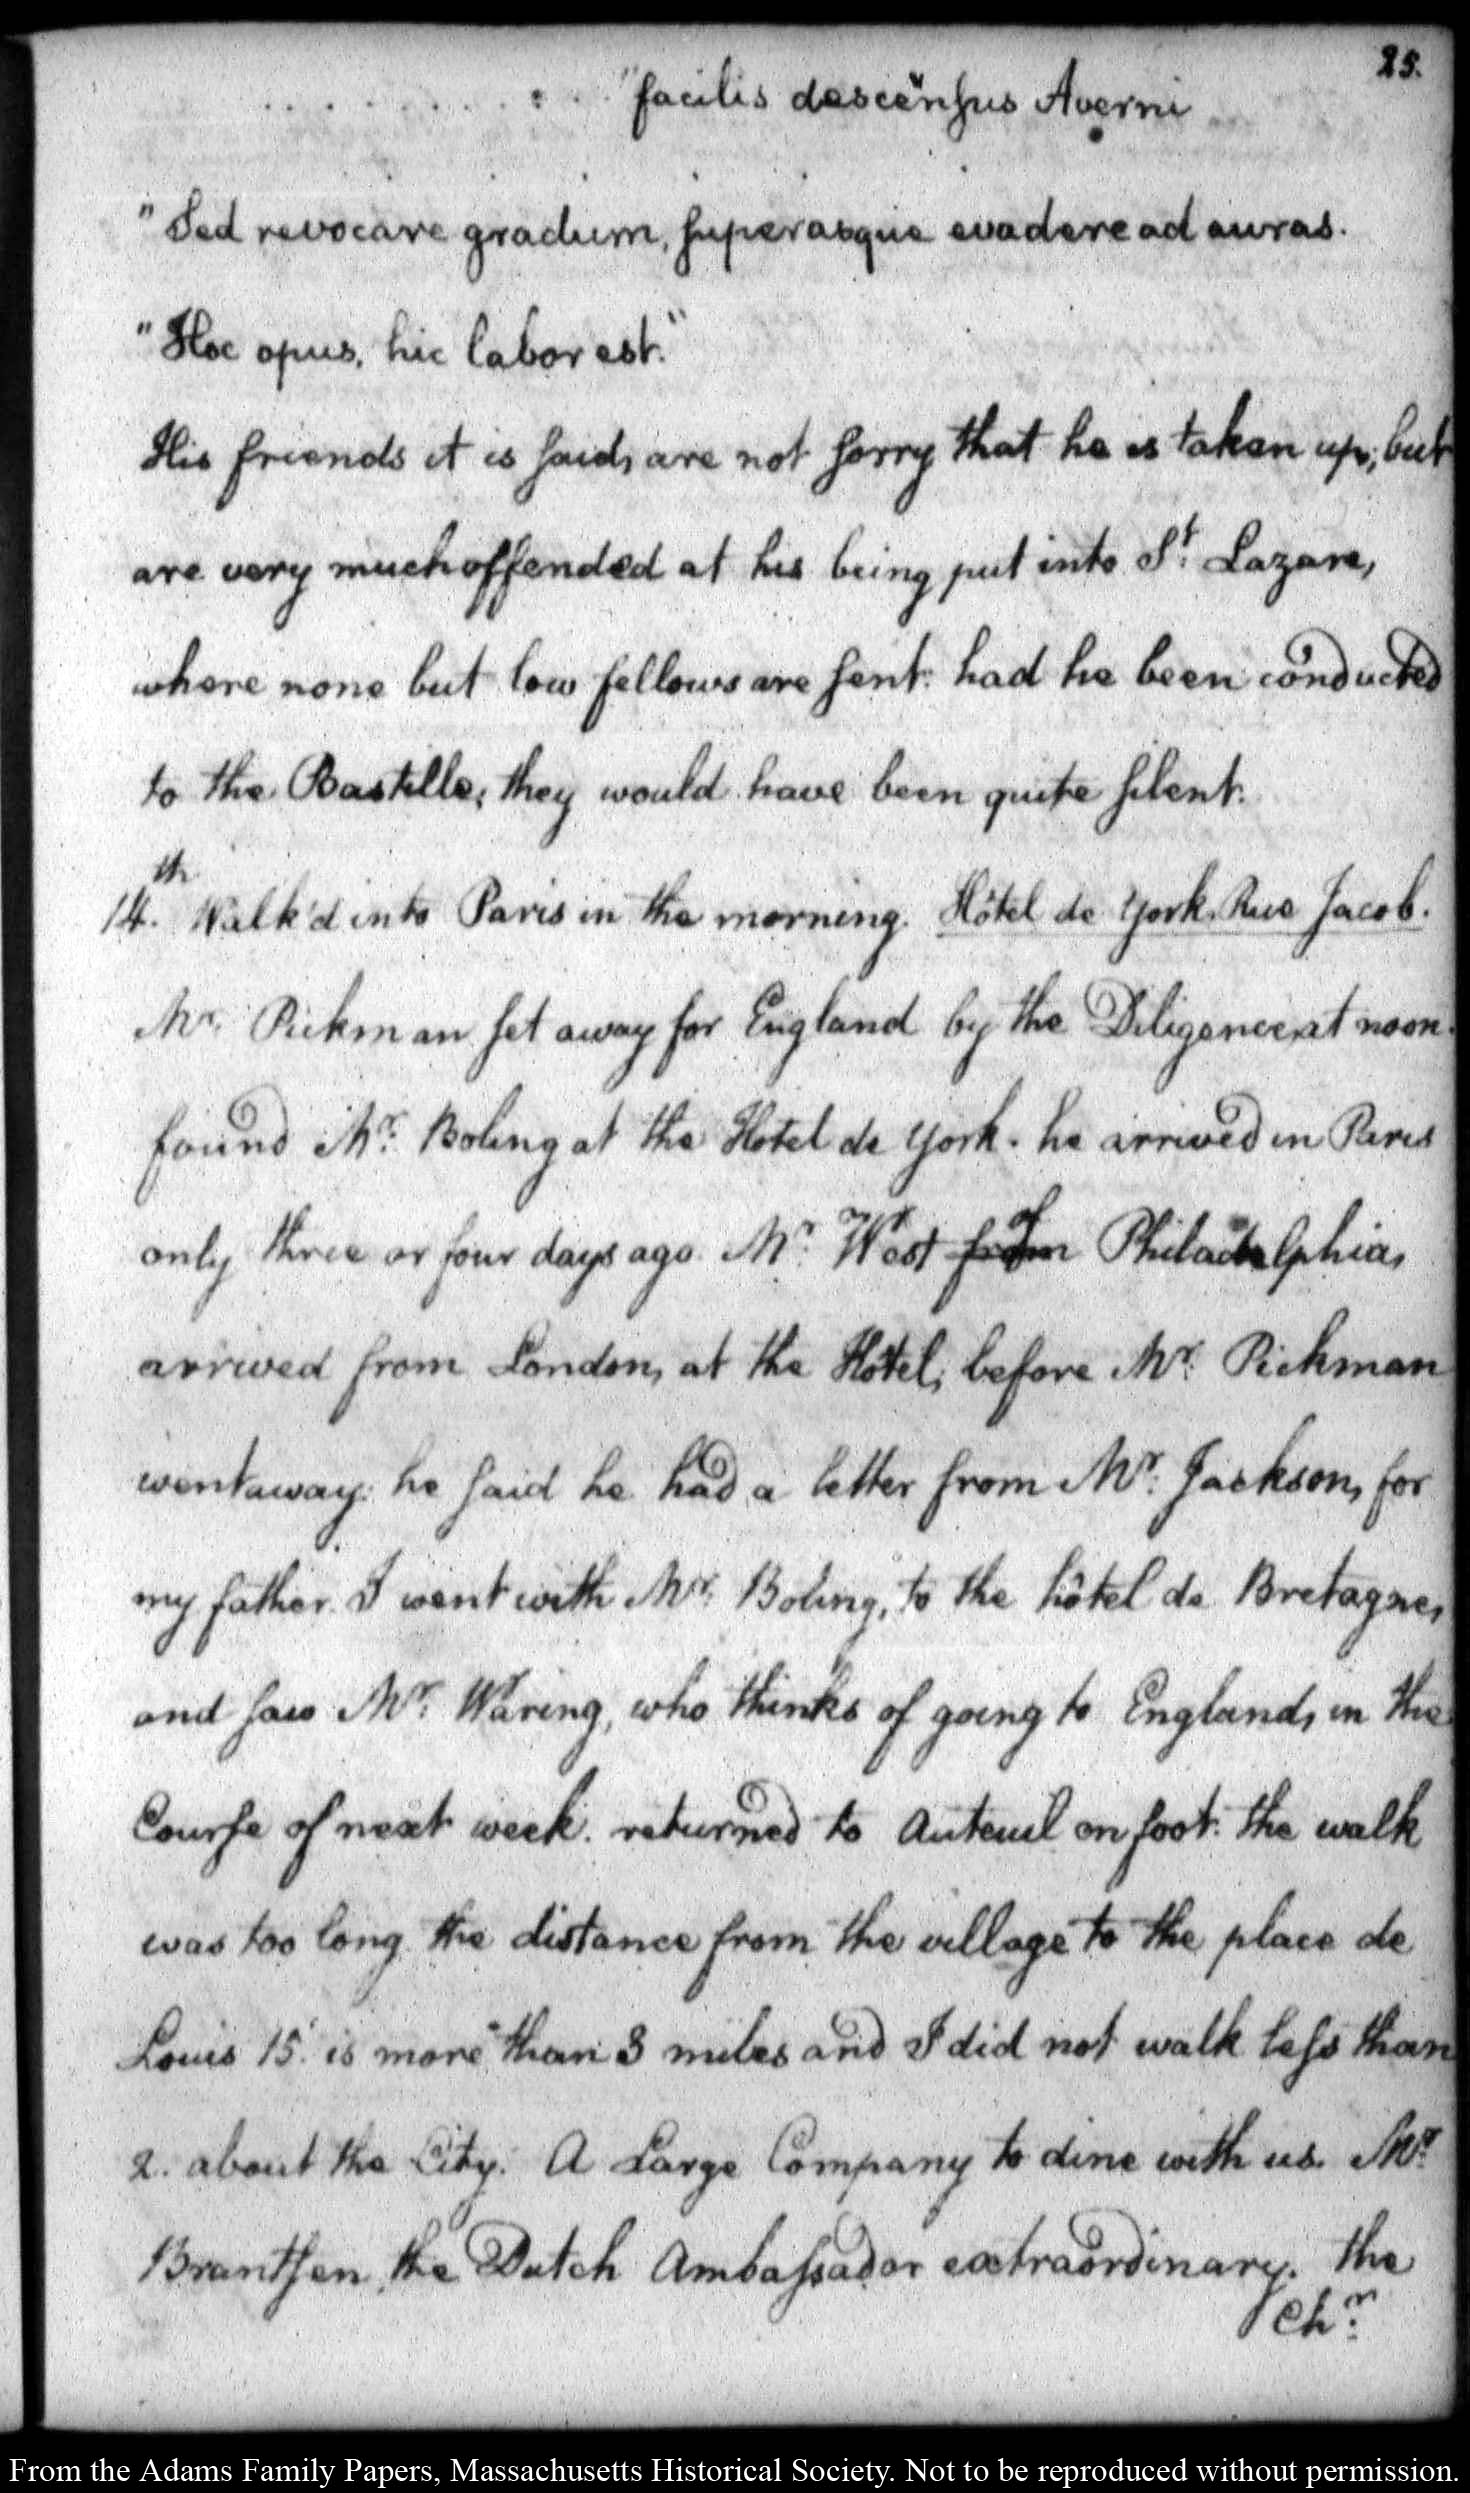 25.
. . . . . . . . : . . "facilis descensus Averni
"Sed revocare gradum, superasque evadere ad auras.
"Hoc opus, hic labor est."
His friends it is said, are not sorry that he is taken up; but
are very much offended at his being put into St. Lazare,
where none but low fellows are sent: had he been conducted
to the Bastille; they would have been quite silent.
14.th Walk'd into Paris in the morning. Hôtel de York. Rue Jacob.
Mr. Pickman set away for England by the Diligence, at noon.
found Mr. Boling at the Hotel de York. he arrived in Paris
only three or four days ago. Mr. West from of Philadelphia,
arrived from London, at the Hôtel, before Mr. Pickman
went away: he said he had a letter from Mr. Jackson, for
my father. I went with Mr. Boling, to the hôtel de Bretagne,
and saw Mr. Waring, who thinks of going to England, in the
Course of next week. returned to Auteuil on foot: the walk
was too long. the distance from the village to the place de
Louis 15. is more than 3 miles and I did not walk less than
2. about the City. A Large Company to dine with us. Mr.
Brantsen, the Dutch Ambassador extraordinary. the
Chr.
From the Adams Family Papers, Massachusetts Historical Society. Not to be reproduced without permission.